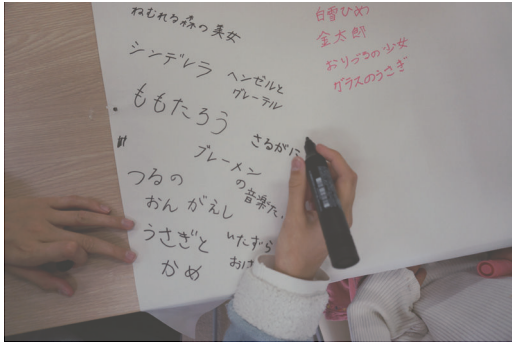 ねむれる森の美女
シンデレラ
ヘンゼルと
グレーテル
ももたろう
さるかに
ブレーメン
の
音楽た
つるの
おんがえし
うさぎと
かめ
いたずら
おば
白雪ひめ
金太郎
おりづるの少女
グラスのうさぎ